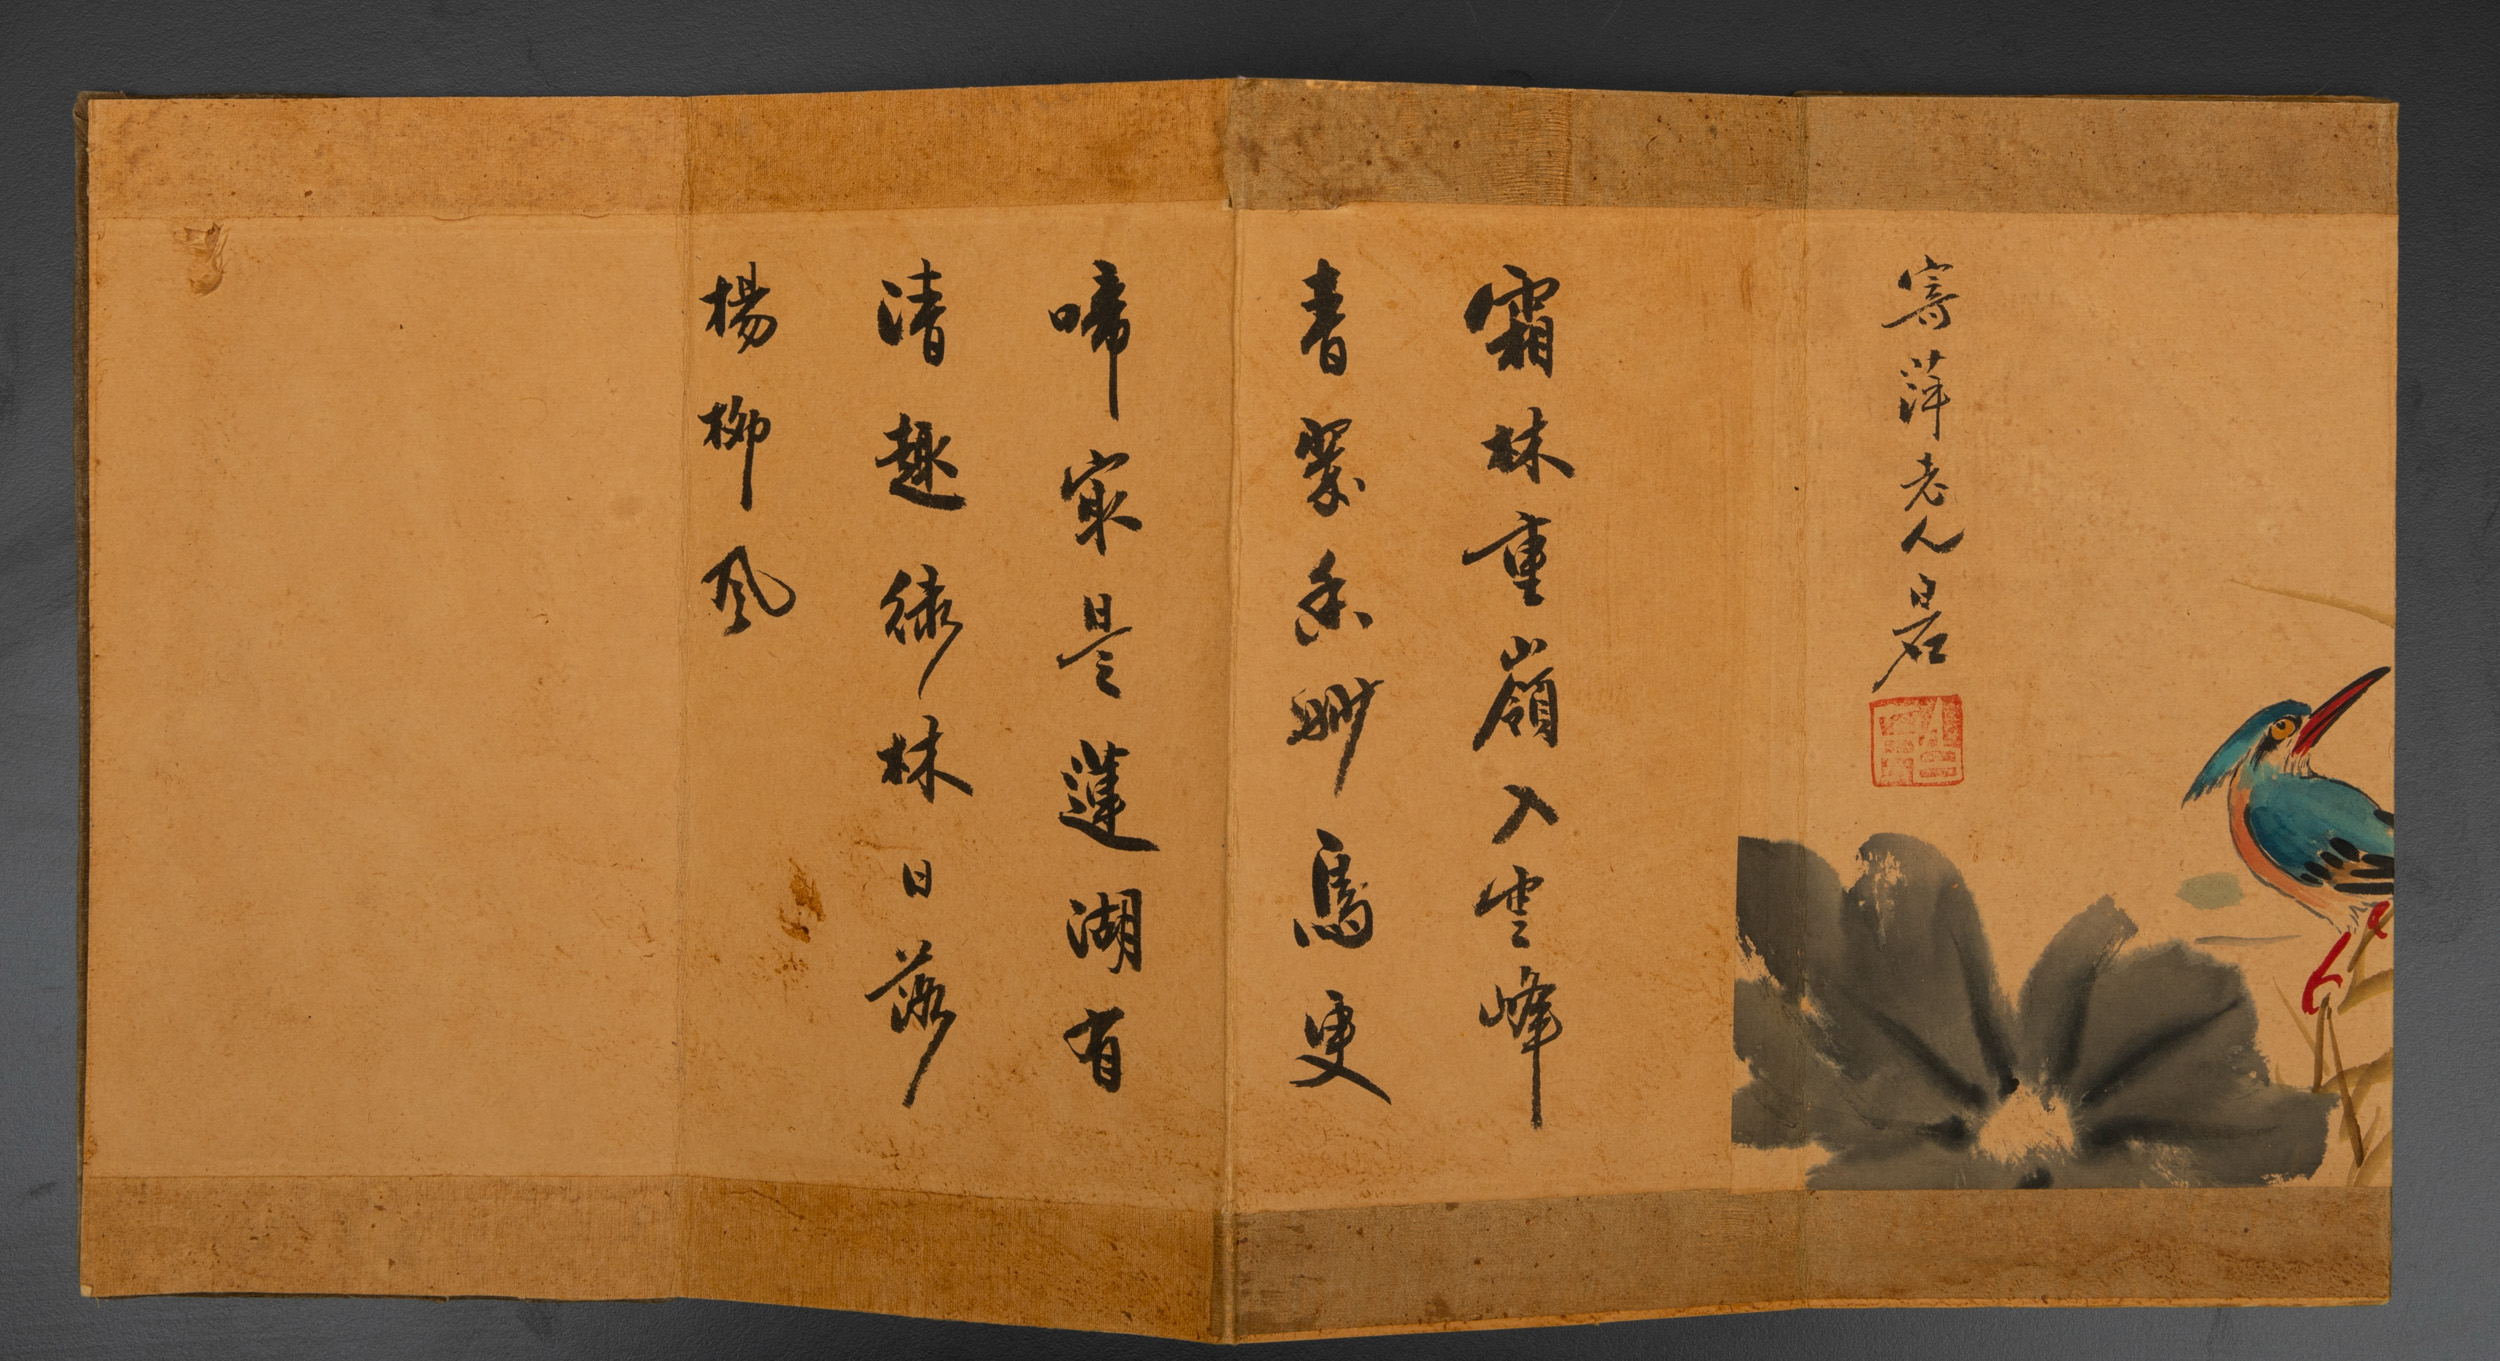 寄萍老人白石
霜林重嶺入雲峰
青翠眇鳥更
啼最是蓮湖有
清趣綠林日落
楊柳風